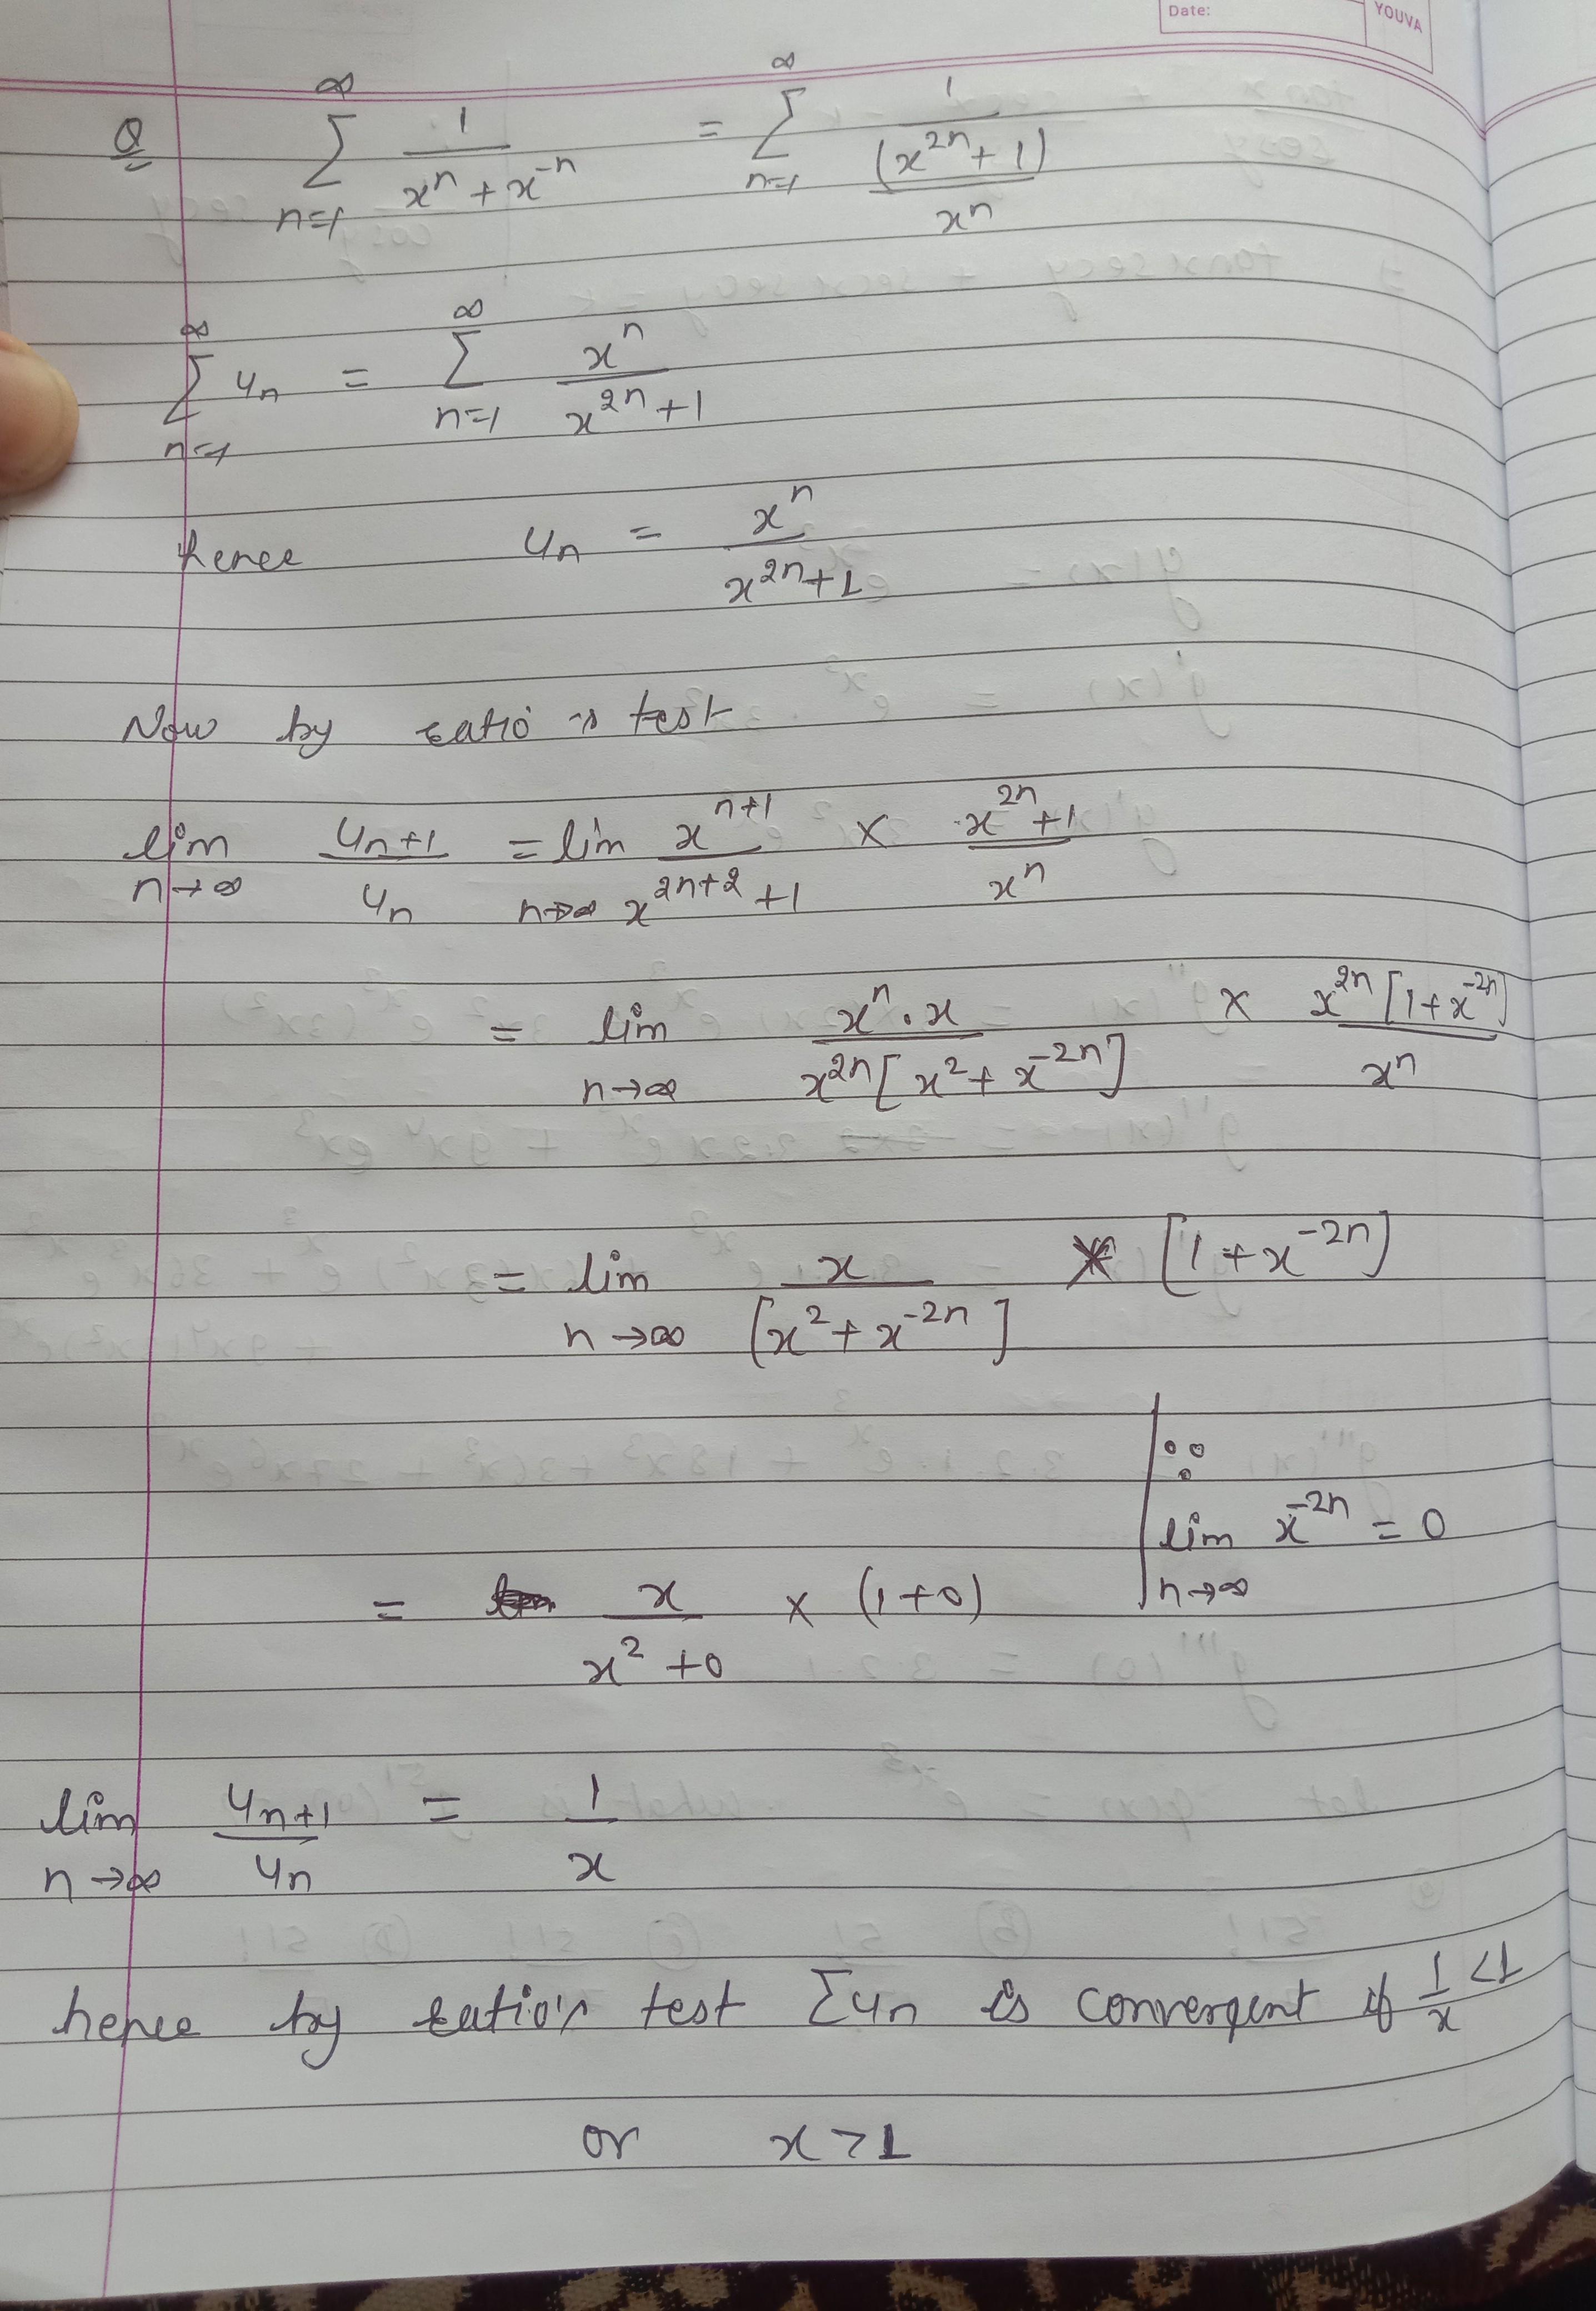 Date:
YOUVA
Q ∞∑n=1 1/(xⁿ + x⁻ⁿ) = ∞∑n=1 1/((x²ⁿ + 1)/xⁿ)
∞∑n=1 uₙ = ∞∑n=1 xⁿ/(x²ⁿ + 1)
hence uₙ = xⁿ/(x²ⁿ + 1)
Now by ratio's test
lim n→∞ uₙ₊₁/uₙ = lim n→∞ xⁿ⁺¹/(x²ⁿ⁺² + 1) × (x²ⁿ + 1)/xⁿ
= lim n→∞ xⁿ·x/(x²ⁿ[x² + x⁻²ⁿ]) × x²ⁿ[1 + x⁻²ⁿ]/xⁿ
= lim n→∞ x/[x² + x⁻²ⁿ] × [1 + x⁻²ⁿ]
∵
lim n→∞ x⁻²ⁿ = 0
= x/(x² + 0) × (1 + 0)
lim n→∞ uₙ₊₁/uₙ = 1/x
hence by ratio's test ∑uₙ is convergent if 1/x < 1
or x > 1